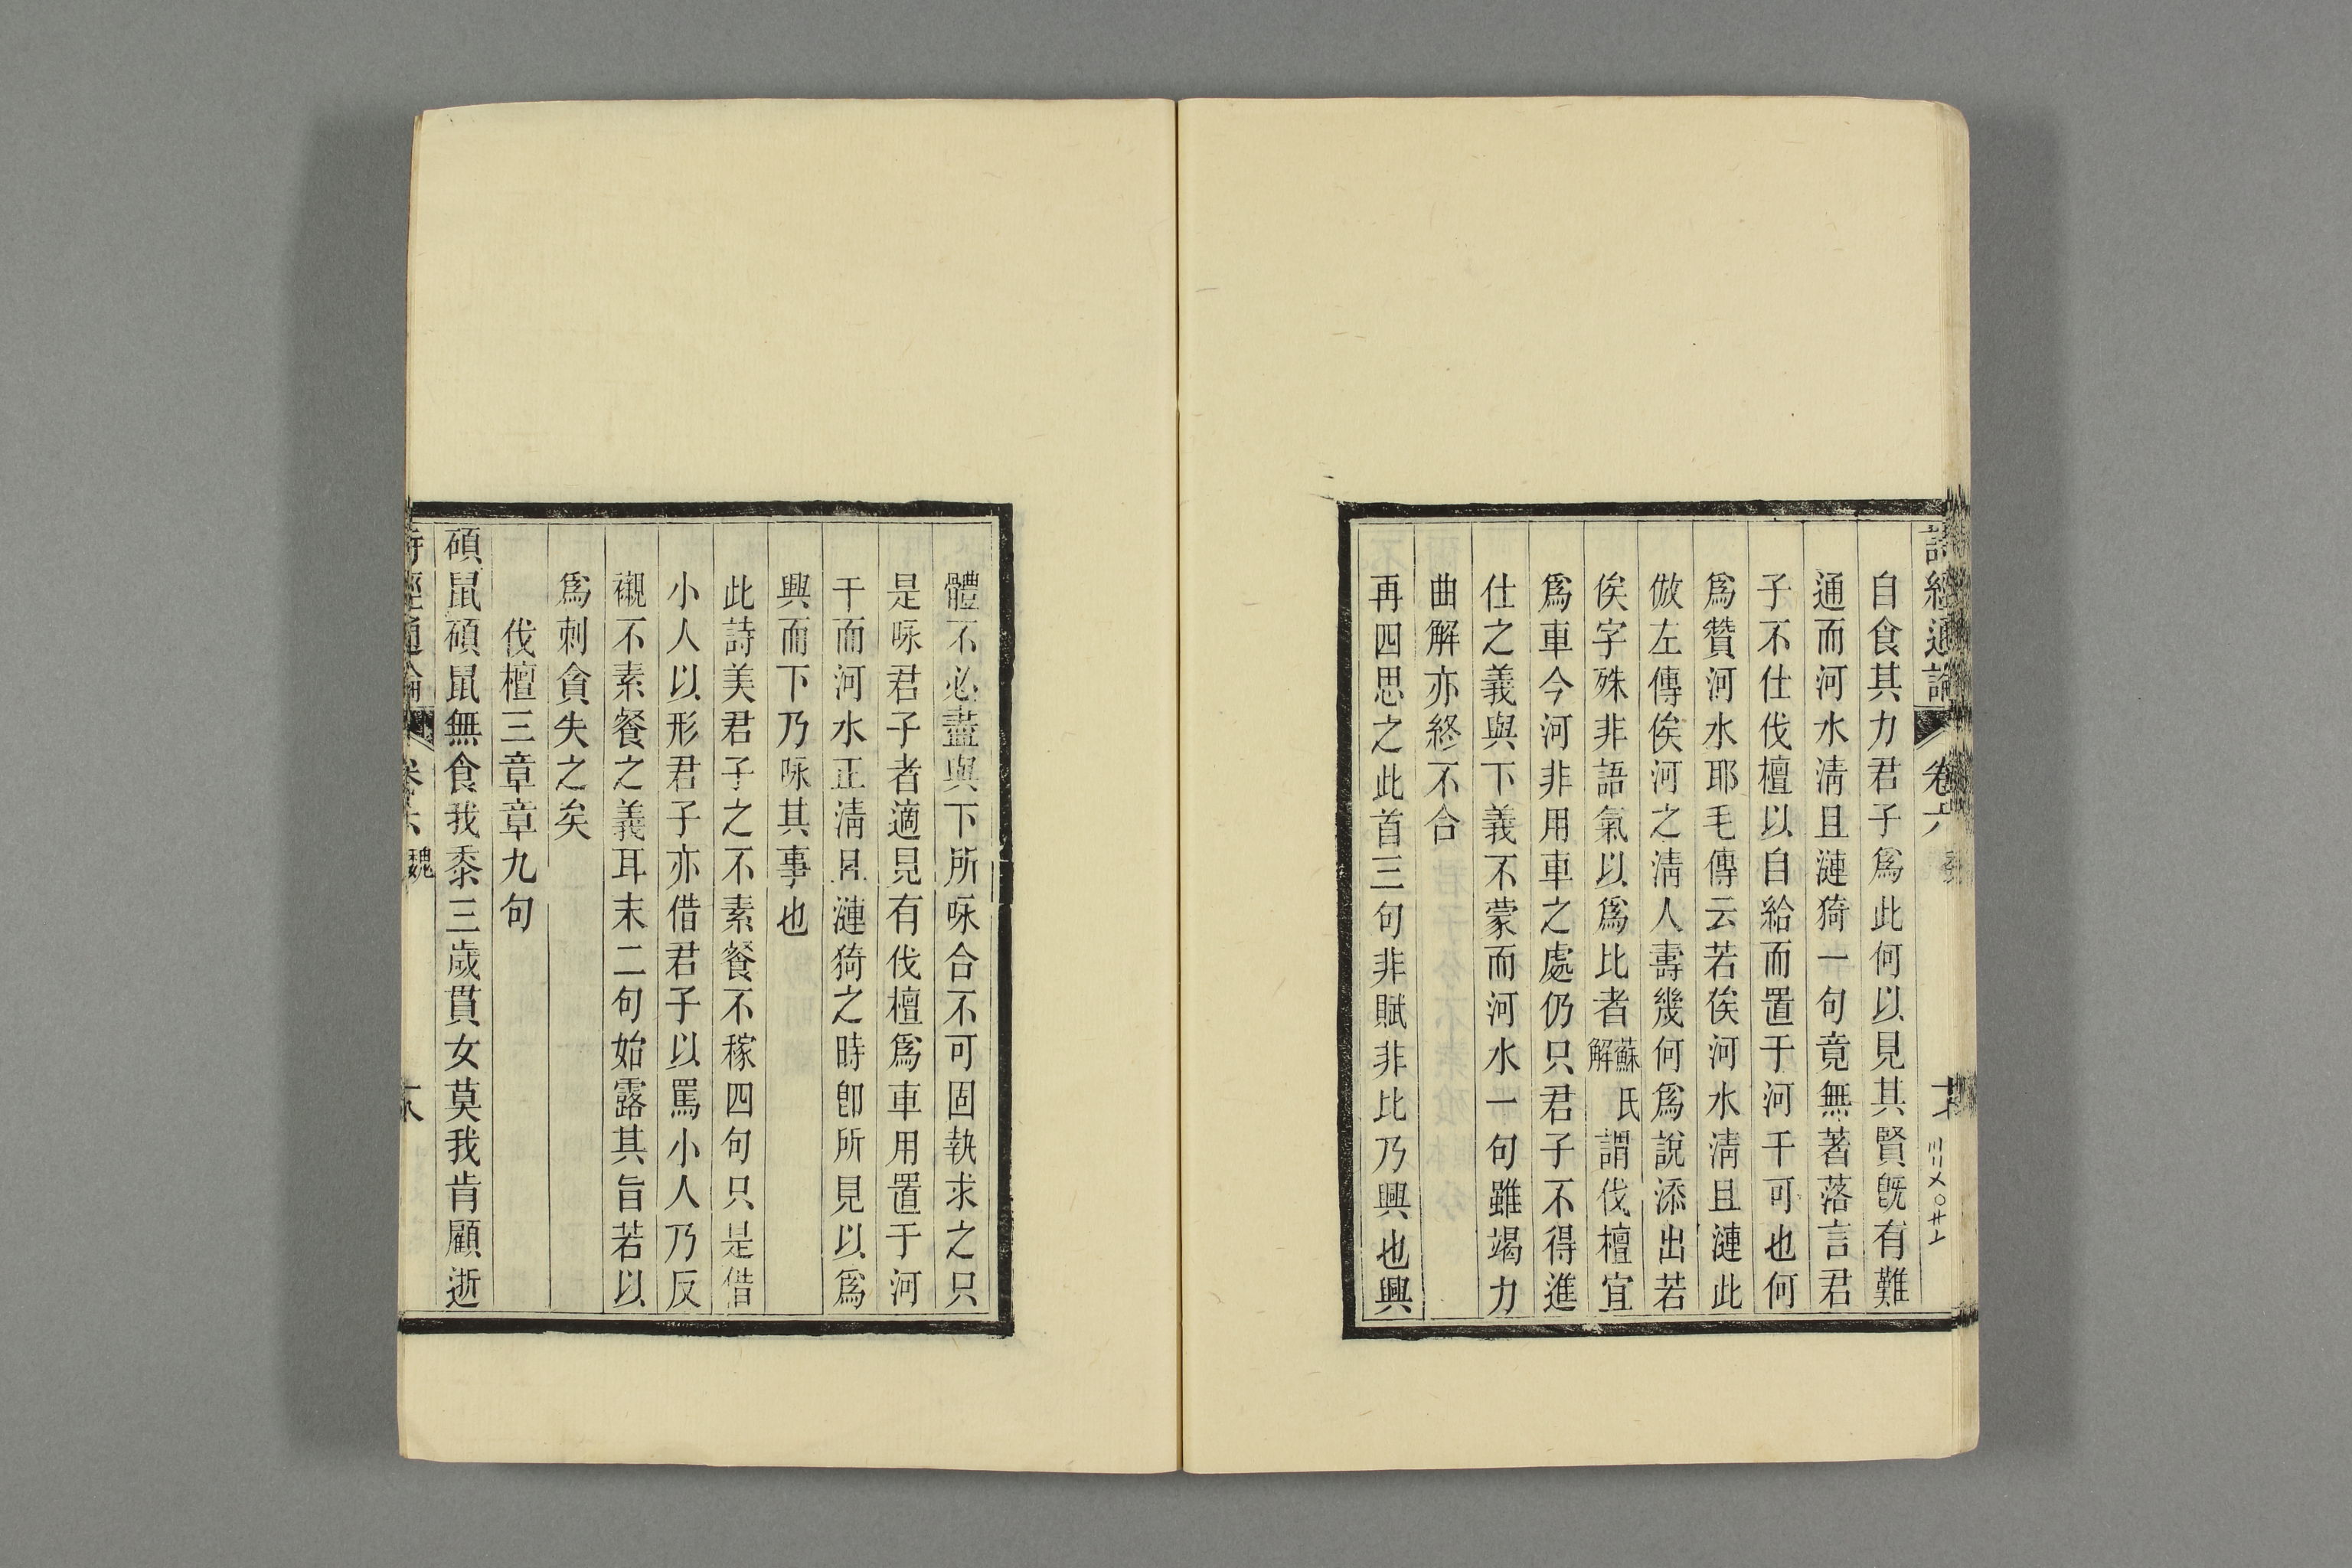 詩經通論 卷六
自食其力君子爲此何以見其賢旣有難
通而河水淸且漣猗一句竟無著落言君
子不仕伐檀以自給而置于河干可也何
爲贊河水耶毛傳云若俟河水淸且漣此
倣左傳俟河之淸人壽幾何爲說添出若
俟字殊非語氣以爲比者蘇氏解謂伐檀宜
爲車今河非用車之處仍只君子不得進
仕之義與下義不蒙而河水一句雖竭力
曲解亦終不合
再四思之此首三句非賦非比乃興也興
體不必盡與下所咏合不可固執求之只
是咏君子者適見有伐檀爲車用置于河
干而河水正淸且漣猗之時卽所見以爲
興而下乃咏其事也
此詩美君子之不素餐不稼四句只是借
小人以形君子亦借君子以罵小人乃反
襯不素餐之義耳末二句始露其旨若以
爲刺貪失之矣
伐檀三章章九句
碩鼠碩鼠無食我黍三歲貫女莫我肯顧逝
詩經通論 卷六 魏